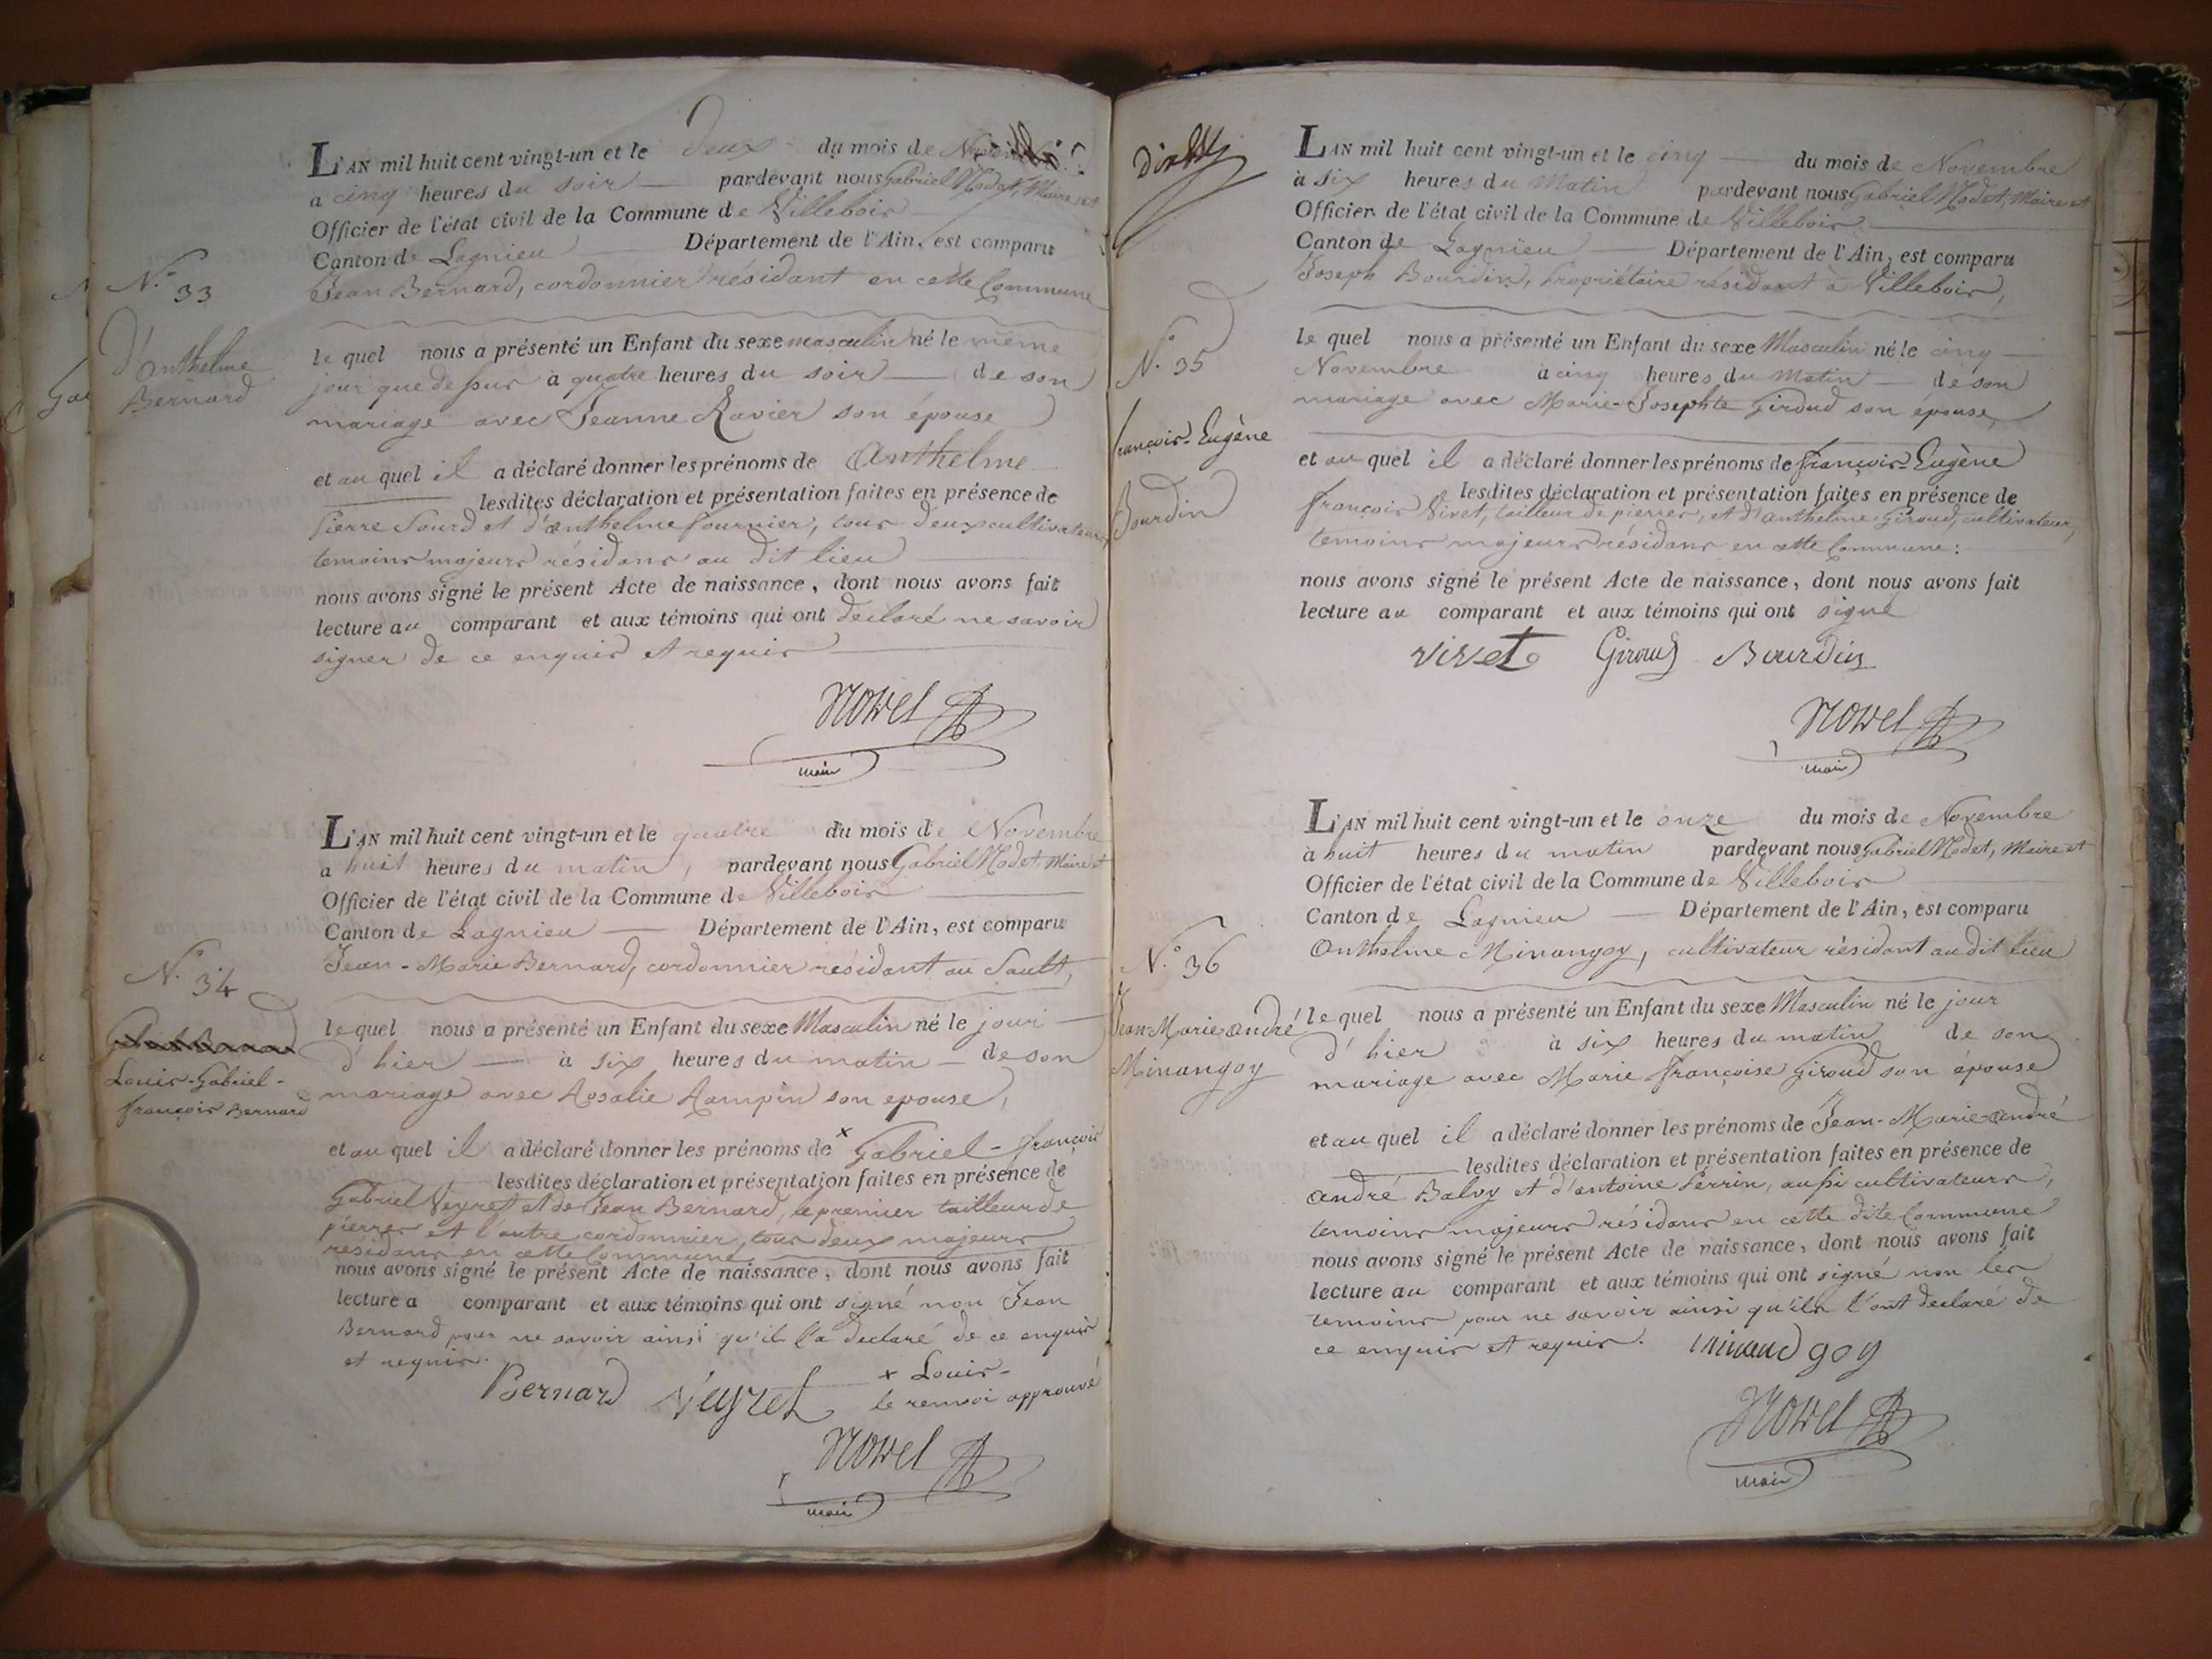 N.° 33
D'anthelme
Bernard
L'AN mil huit cent vingt-un et le Deux du mois de Novembre
a cinq heures du soir pardevant nous Gabriel Modet, Maire et
Officier de l'état civil de la Commune de Villebois
Canton de Lagnieu Département de l'Ain, est comparu
Jean Bernard, cordonnier résidant en cette Commune
le quel nous a présenté un Enfant du sexe masculin né le même
jour que dessus à quatre heures du soir de son
mariage avec Jeanne Ravier son épouse
et au quel il a déclaré donner les prénoms de Anthelme
lesdites déclaration et présentation faites en présence de
Pierre Sourd et d'anthelme fournier, tous deux cultivateurs
temoins majeurs résidans au dit lieu
nous avons signé le présent Acte de naissance, dont nous avons fait
lecture au comparant et aux témoins qui ont declaré ne savoir
signer de ce enquis et requis
Maire
N.° 34
Louis-Gabriel-
françois Bernard
L'AN mil huit cent vingt-un et le quatre du mois de Novembre
a huit heures du matin, pardevant nous Gabriel Modet, Maire et
Officier de l'état civil de la Commune de Villebois
Canton de Lagnieu Département de l'Ain, est comparu
Jean-Marie Bernard, cordonnier residant au Sault,
le quel nous a présenté un Enfant du sexe Masculin né le jour
d'hier à six heures du matin de son
mariage avec Rosalie Rampin son epouse,
et au quel il a déclaré donner les prénoms de x Gabriel-françois
lesdites déclaration et présentation faites en présence de
Gabriel Veyret et de Jean Bernard, le premier tailleur de
pierres et l'autre cordonnier, tous deux majeurs
residans en cette Commune
nous avons signé le présent Acte de naissance, dont nous avons fait
lecture a comparant et aux témoins qui ont signé non Jean
Bernard pour ne savoir ainsi qu'il l'a declaré de ce enquis
et requis.
Bernard Veyret x Louis-
le renvoi approuvé
Maire
N.° 35
françois-Eugène
Bourdin
L'AN mil huit cent vingt-un et le cinq du mois de Novembre
à six heures du Matin pardevant nous Gabriel Modet, Maire et
Officier de l'état civil de la Commune de Villebois
Canton de Lagnieu Département de l'Ain, est comparu
Joseph Bourdin, propriétaire résidant à Villebois,
le quel nous a présenté un Enfant du sexe Masculin né le cinq
Novembre à cinq heures du Matin de son
mariage avec Marie-Josephte Giroud son épouse,
et au quel il a déclaré donner les prénoms de françois-Eugène
lesdites déclaration et présentation faites en présence de
françois Vivet, tailleur de pierres, et d'anthelme Giroud, cultivateur,
temoins majeurs résidans en cette Commune:
nous avons signé le présent Acte de naissance, dont nous avons fait
lecture au comparant et aux témoins qui ont signé
vivet Giroud Bourdin
Maire
N.° 36
Jean-Marie andré
Minangoy
L'AN mil huit cent vingt-un et le onze du mois de Novembre
à huit heures du matin pardevant nous Gabriel Modet, Maire et
Officier de l'état civil de la Commune de Villebois
Canton de Lagnieu Département de l'Ain, est comparu
Anthelme Minangoy, cultivateur résidant au dit lieu
le quel nous a présenté un Enfant du sexe Masculin né le jour
d'hier à six heures du matin de son
mariage avec Marie françoise Giroud son épouse
et au quel il a déclaré donner les prénoms de Jean-Marie andré
lesdites déclaration et présentation faites en présence de
andré Balvy et d'antoine Perrin, aussi cultivateurs,
temoins majeurs résidans en cette dite Commune
nous avons signé le présent Acte de naissance, dont nous avons fait
lecture au comparant et aux témoins qui ont signé non les
temoins pour ne savoir ainsi qu'ils l'ont declaré de
ce enquis et requis.
Maire